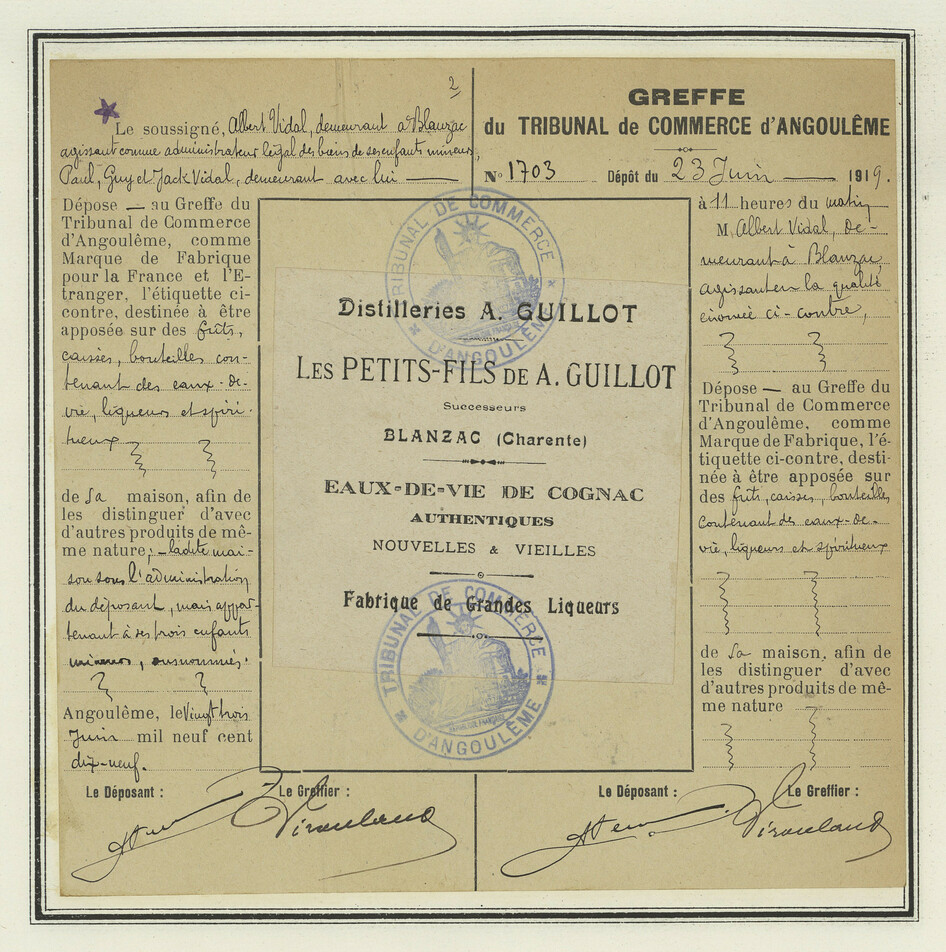 2
Le soussigné, Albert Vidal, demeurant à Blanzac
agissant comme administrateur légal des biens de ses enfants mineurs,
Paul, Guy et Jack Vidal, demeurant avec lui —
Dépose — au Greffe du
Tribunal de Commerce
d'Angoulême, comme
Marque de Fabrique
pour la France et l'E-
tranger, l'étiquette ci-
contre, destinée à être
apposée sur des fûts,
caisses, bouteilles con-
tenant des eaux-de-
vie, liqueurs et spiri-
tueux
de sa maison, afin de
les distinguer d'avec
d'autres produits de mê-
me nature; - ladite mai-
son sous l'administration
du déposant, mais appar-
tenant à ses trois enfants
mineurs, susnommés.
Angoulême, le Vingt trois
Juin mil neuf cent
dix-neuf.
Le Déposant : Le Greffier :
GREFFE
du TRIBUNAL de COMMERCE d'ANGOULÊME
N° 1703 Dépôt du 23 Juin — 1919.
à 11 heures du matin
M. Albert Vidal, de-
meurant à Blanzac,
agissant en la qualité
énoncée ci-contre,
Dépose — au Greffe du
Tribunal de Commerce
d'Angoulême, comme
Marque de Fabrique, l'é-
tiquette ci-contre, desti-
née à être apposée sur
des fûts, caisses, bouteilles
contenant des eaux-de-
vie, liqueurs et spiritueux
de sa maison, afin de
les distinguer d'avec
d'autres produits de mê-
me nature
Le Déposant : Le Greffier :
TRIBUNAL DE COMMERCE
D'ANGOULÊME
Distilleries A. GUILLOT
LES PETITS-FILS DE A. GUILLOT
Successeurs
BLANZAC (Charente)
EAUX-DE-VIE DE COGNAC
AUTHENTIQUES
NOUVELLES & VIEILLES
Fabrique de Grandes Liqueurs
TRIBUNAL DE COMMERCE
RÉPUBLIQUE FRANÇAISE
D'ANGOULÊME